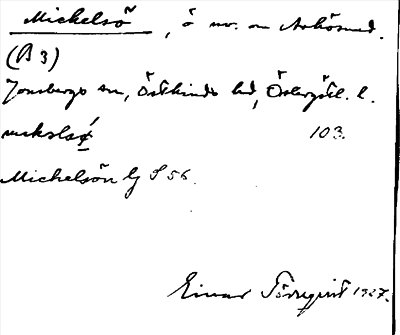 Mickelsö, ö nv. om Arkösund.
(B 3)
Jonsbergs sn, Östkinds hd, Östergötl. l.
103.
Mickelsön Gj S 56.
Einar Törnqvist 1927.